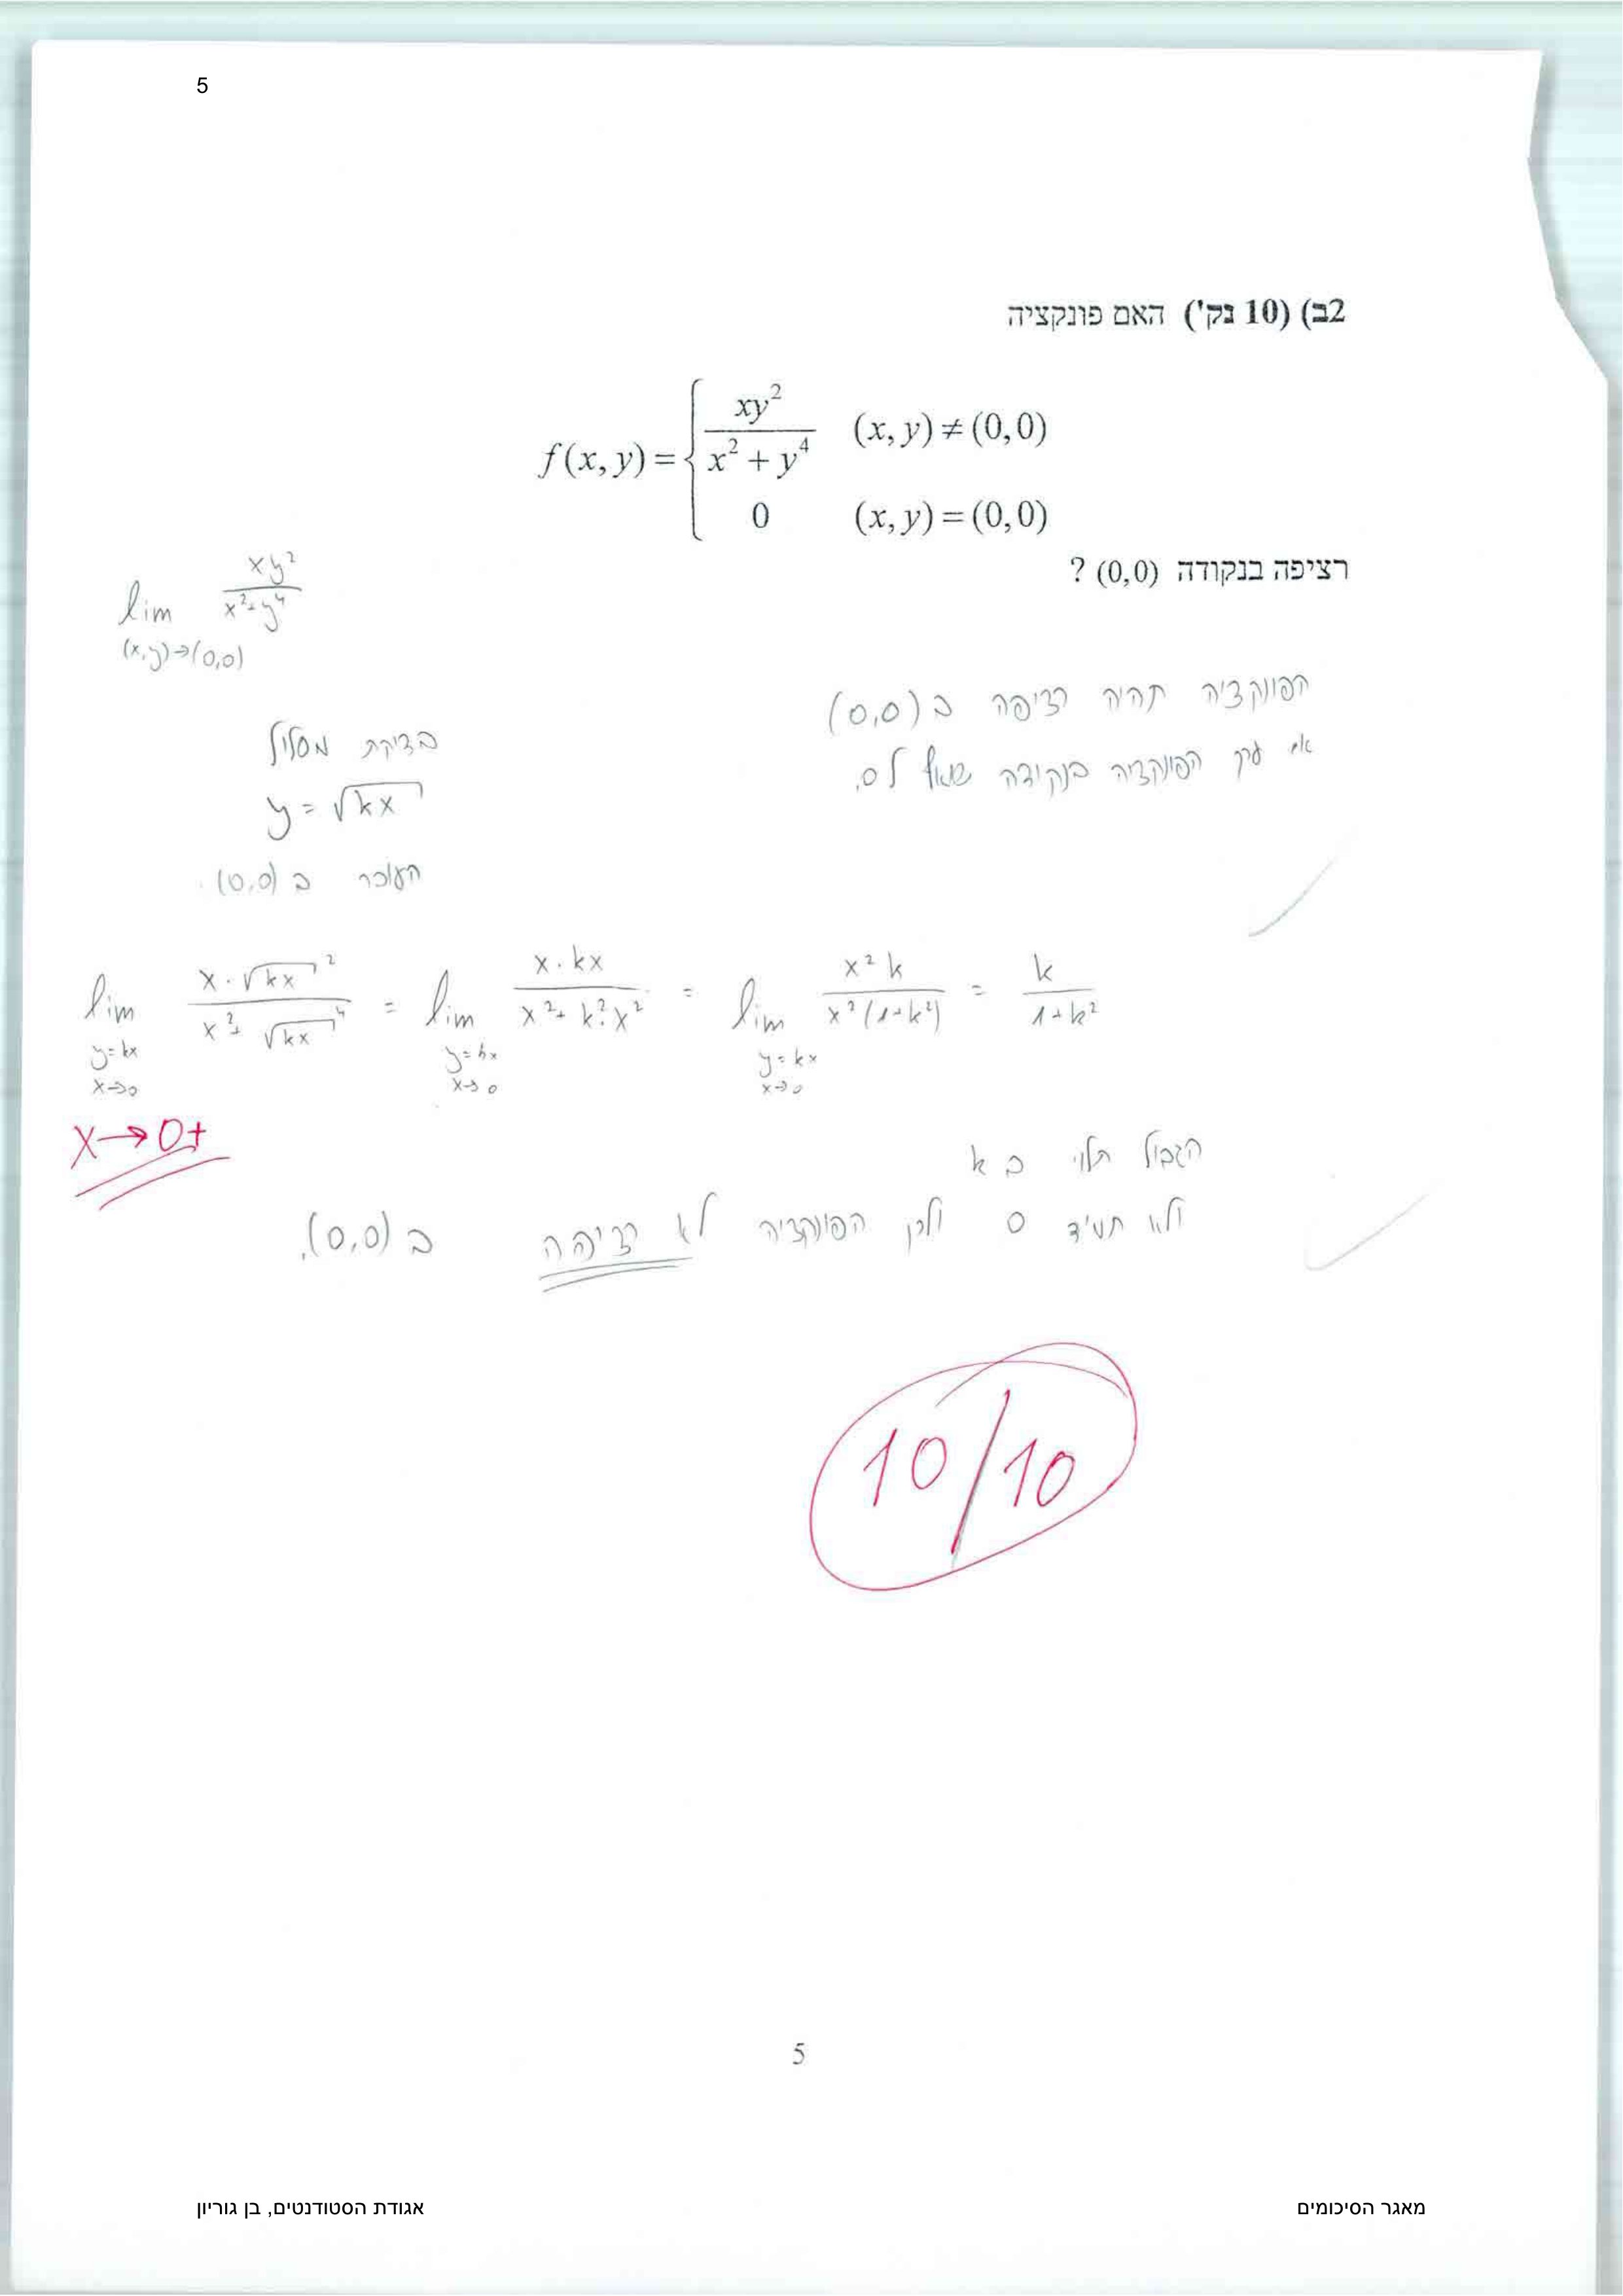 5
2ב) (10 נק') האם פונקציה
f(x, y) = { xy² / (x² + y⁴)   (x, y) ≠ (0,0)
0   (x, y) = (0,0)
רציפה בנקודה (0,0) ?
lim (x,y)→(0,0) xy² / (x²+y⁴)
הפונקציה תהיה רציפה ב (0,0)
אם ערך הפונקציה בנקודה שואף ל 0.
בדיקת מסלול
y = √(kx)
העובר ב (0,0).
lim y=kx x→0 x·√(kx)² / (x²+√(kx)⁴) = lim y=kx x→0 x·kx / (x²+k²·x²) = lim y=kx x→0 x²k / (x²(1+k²)) = k / (1+k²)
x→0+
הגבול תלוי ב k
ולא תמיד 0 ולכן הפונקציה לא רציפה ב (0,0).
10/10
5
מאגר הסיכומים
אגודת הסטודנטים, בן גוריון